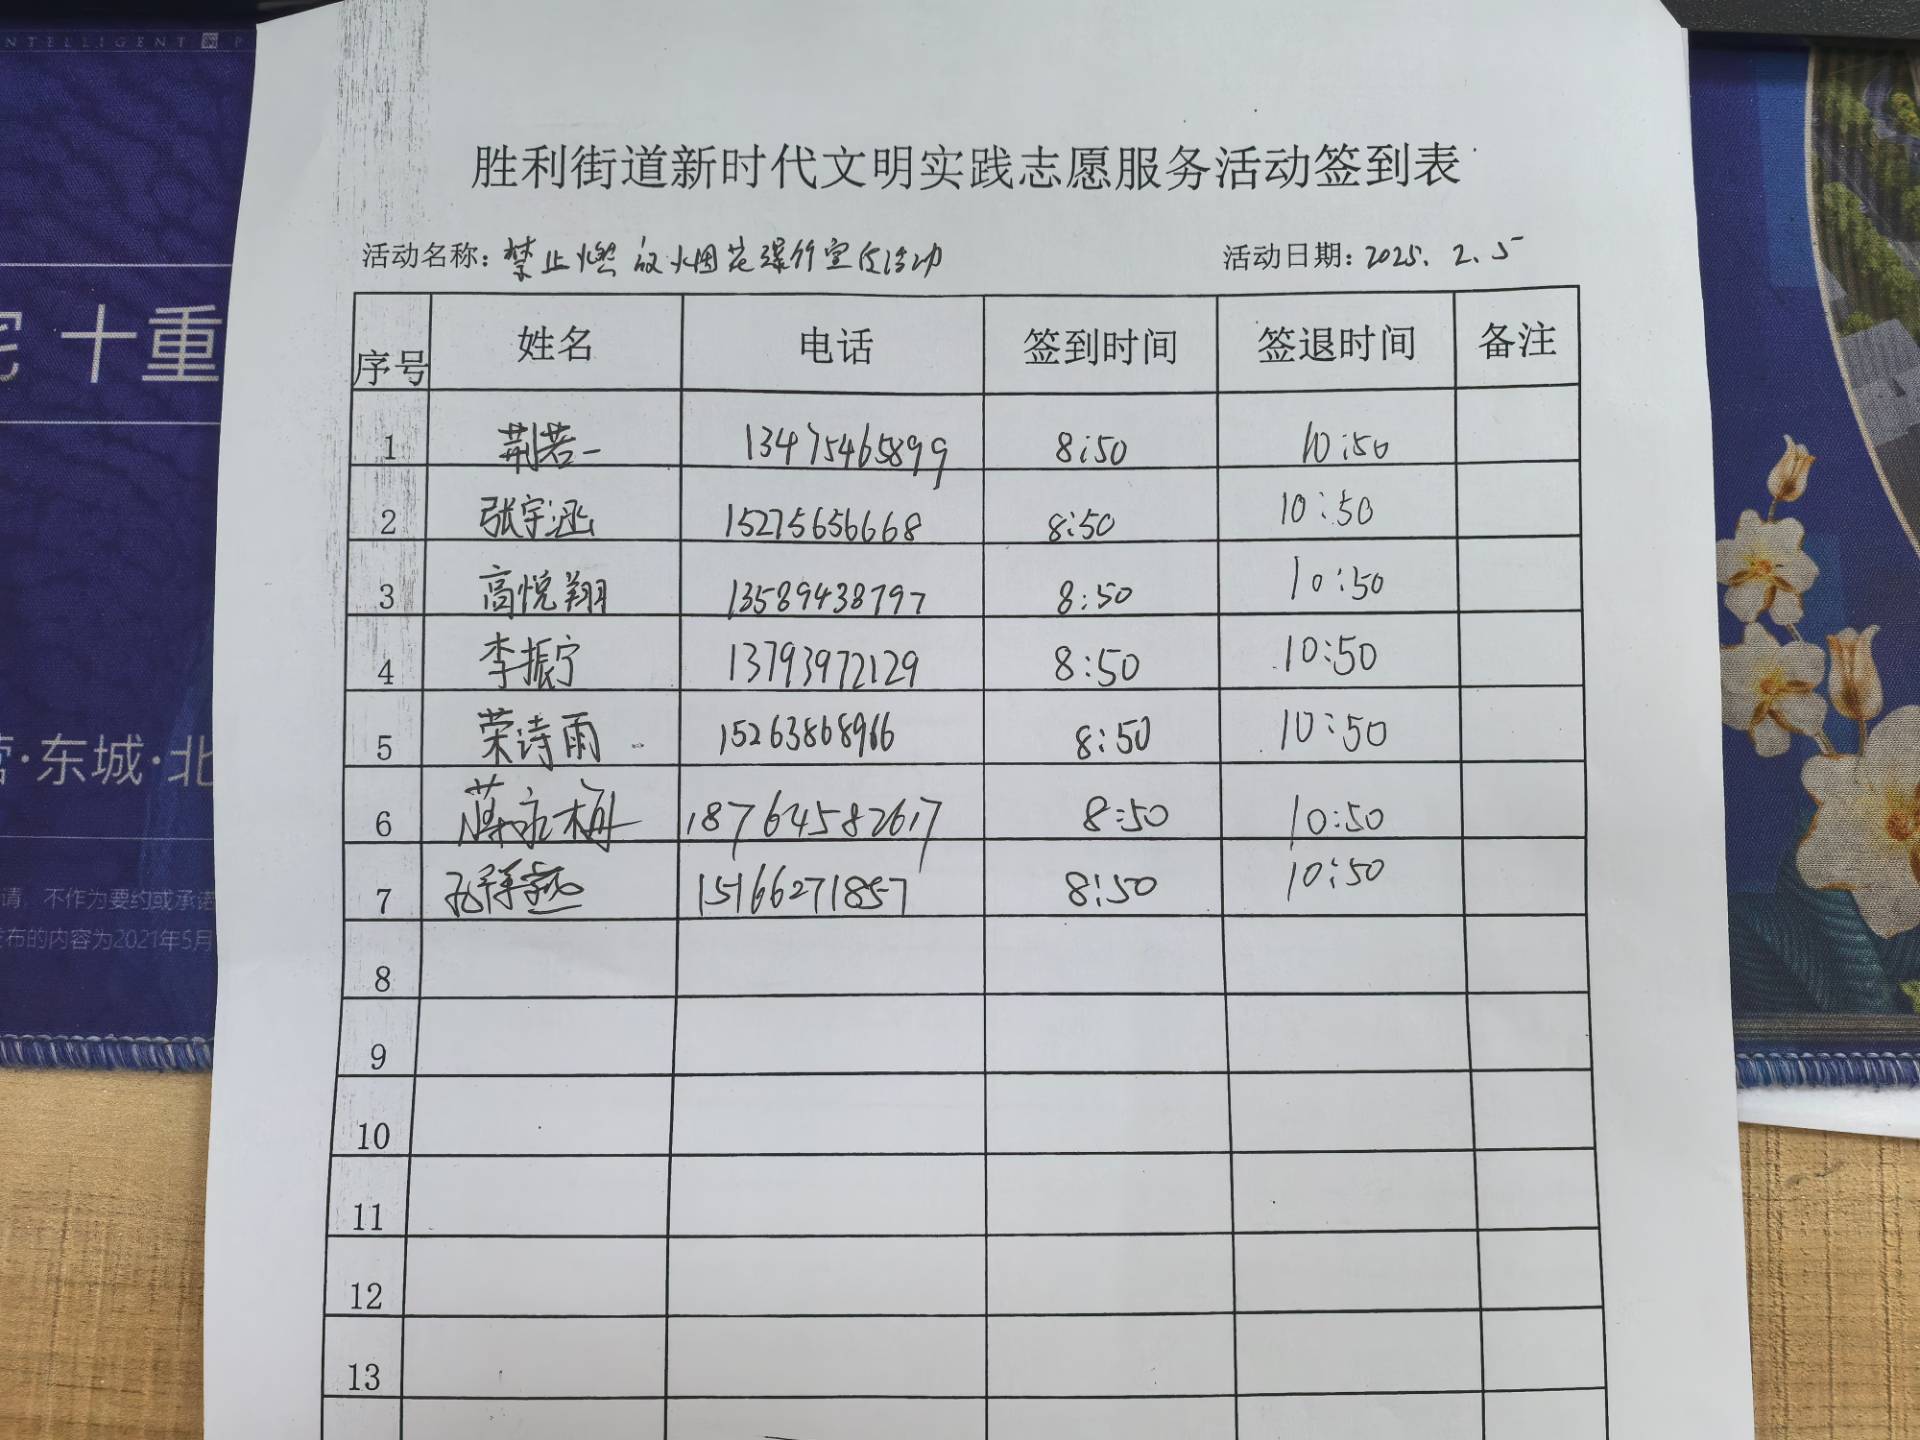 INTELLIGENT
宅 十重
营·东城·北
请，不作为要约或承诺
发布的内容为2021年5月
胜利街道新时代文明实践志愿服务活动签到表
活动名称：禁止燃放烟花爆竹宣传活动 活动日期：2025.2.5
序号 姓名 电话 签到时间 签退时间 备注
1 荆若一 13475465899 8:50 10:50
2 张宇涵 15275656668 8:50 10:50
3 高悦翔 13589438797 8:50 10:50
4 李振宁 13793972129 8:50 10:50
5 荣诗雨 15263868966 8:50 10:50
6 18764582617 8:50 10:50
7 15166271857 8:50 10:50
8
9
10
11
12
13